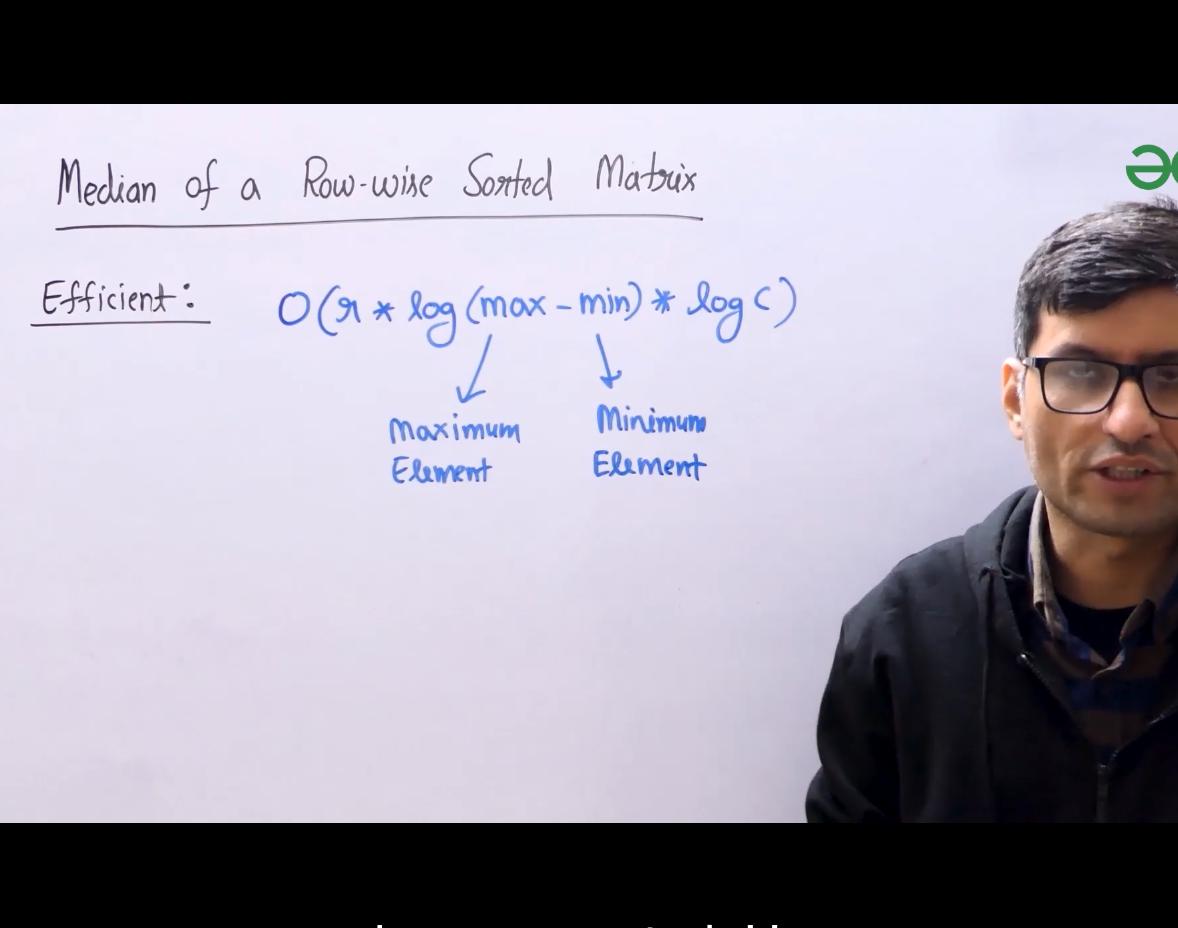 Median of a Row-wise Sorted Matrix
Efficient: O(r * log(max - min) * log c)
Maximum Element
Minimum Element